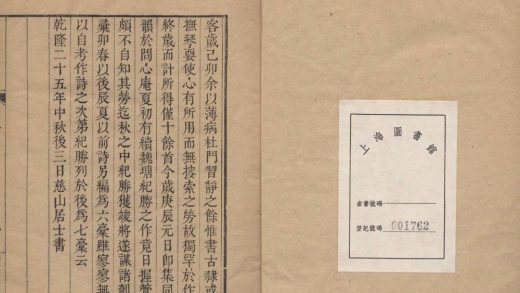 客歲己卯余以薄病杜門習靜之餘惟書古隸或
撫琴要使心有所用而無搜索之勞故獨罕於作
終歲而計所得僅十餘首今歲庚辰元日即集同
韻於問心庵夏初有續魏塘紀勝之作竟日握管
頗不自知其勞迄秋之中紀勝獲竣將遂謀諸剞
彙卯春以後辰夏以前詩另編爲六稾雖寥寥無
以自考作詩之次第紀勝列於後爲七稾云
乾隆二十五年中秋後三日慈山居士書
上海圖書館
索書號碼
登記號碼 901762